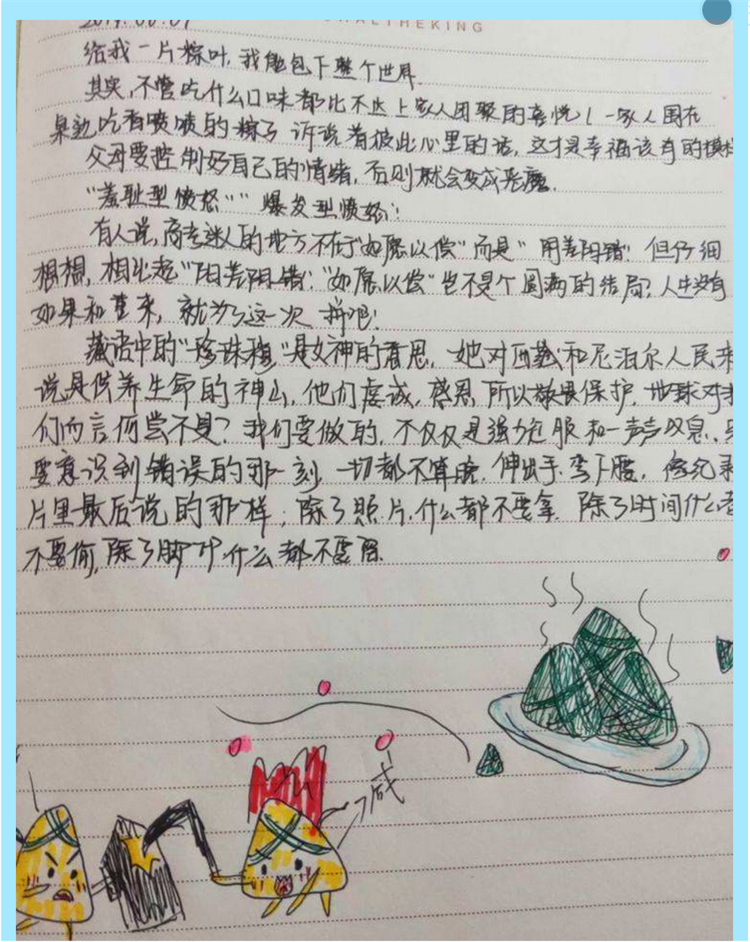 2019.06.07
HALTHEKING
给我一片粽叶,我能包下整个世界.
其实,不管吃什么口味都比不上家人团聚的喜悦!一家人围在
桌边吃香喷喷的粽子 诉说着彼此心里的话,这才是幸福该有的模样
父母要控制好自己的情绪,否则就会变成恶魔.
"羞耻型愤怒""爆发型愤怒"!
有人说,高考迷人的地方不在于"如愿以偿"而是"阳差阴错" 但仔细
想想,相比起"阳差阴错","如愿以偿"岂不是个圆满的结局?人生没有
如果和重来,就为了这一次 拼吧!
藏语中的"珍珠穆"是女神的意思,她对西藏和尼泊尔人民来
说是供养生命的神山,他们虔诚,感恩,所以敬畏保护.地球对我
们而言何尝不是?我们要做的,不仅仅是强力克服和一声声叹息,只
要意识到错误的那一刻,一切都不算晚.伸出手,弯下腰,像纪录
片里最后说的那样:除了照片,什么都不要拿.除了时间什么都
不要偷,除了脚印什么都不要留.
咸